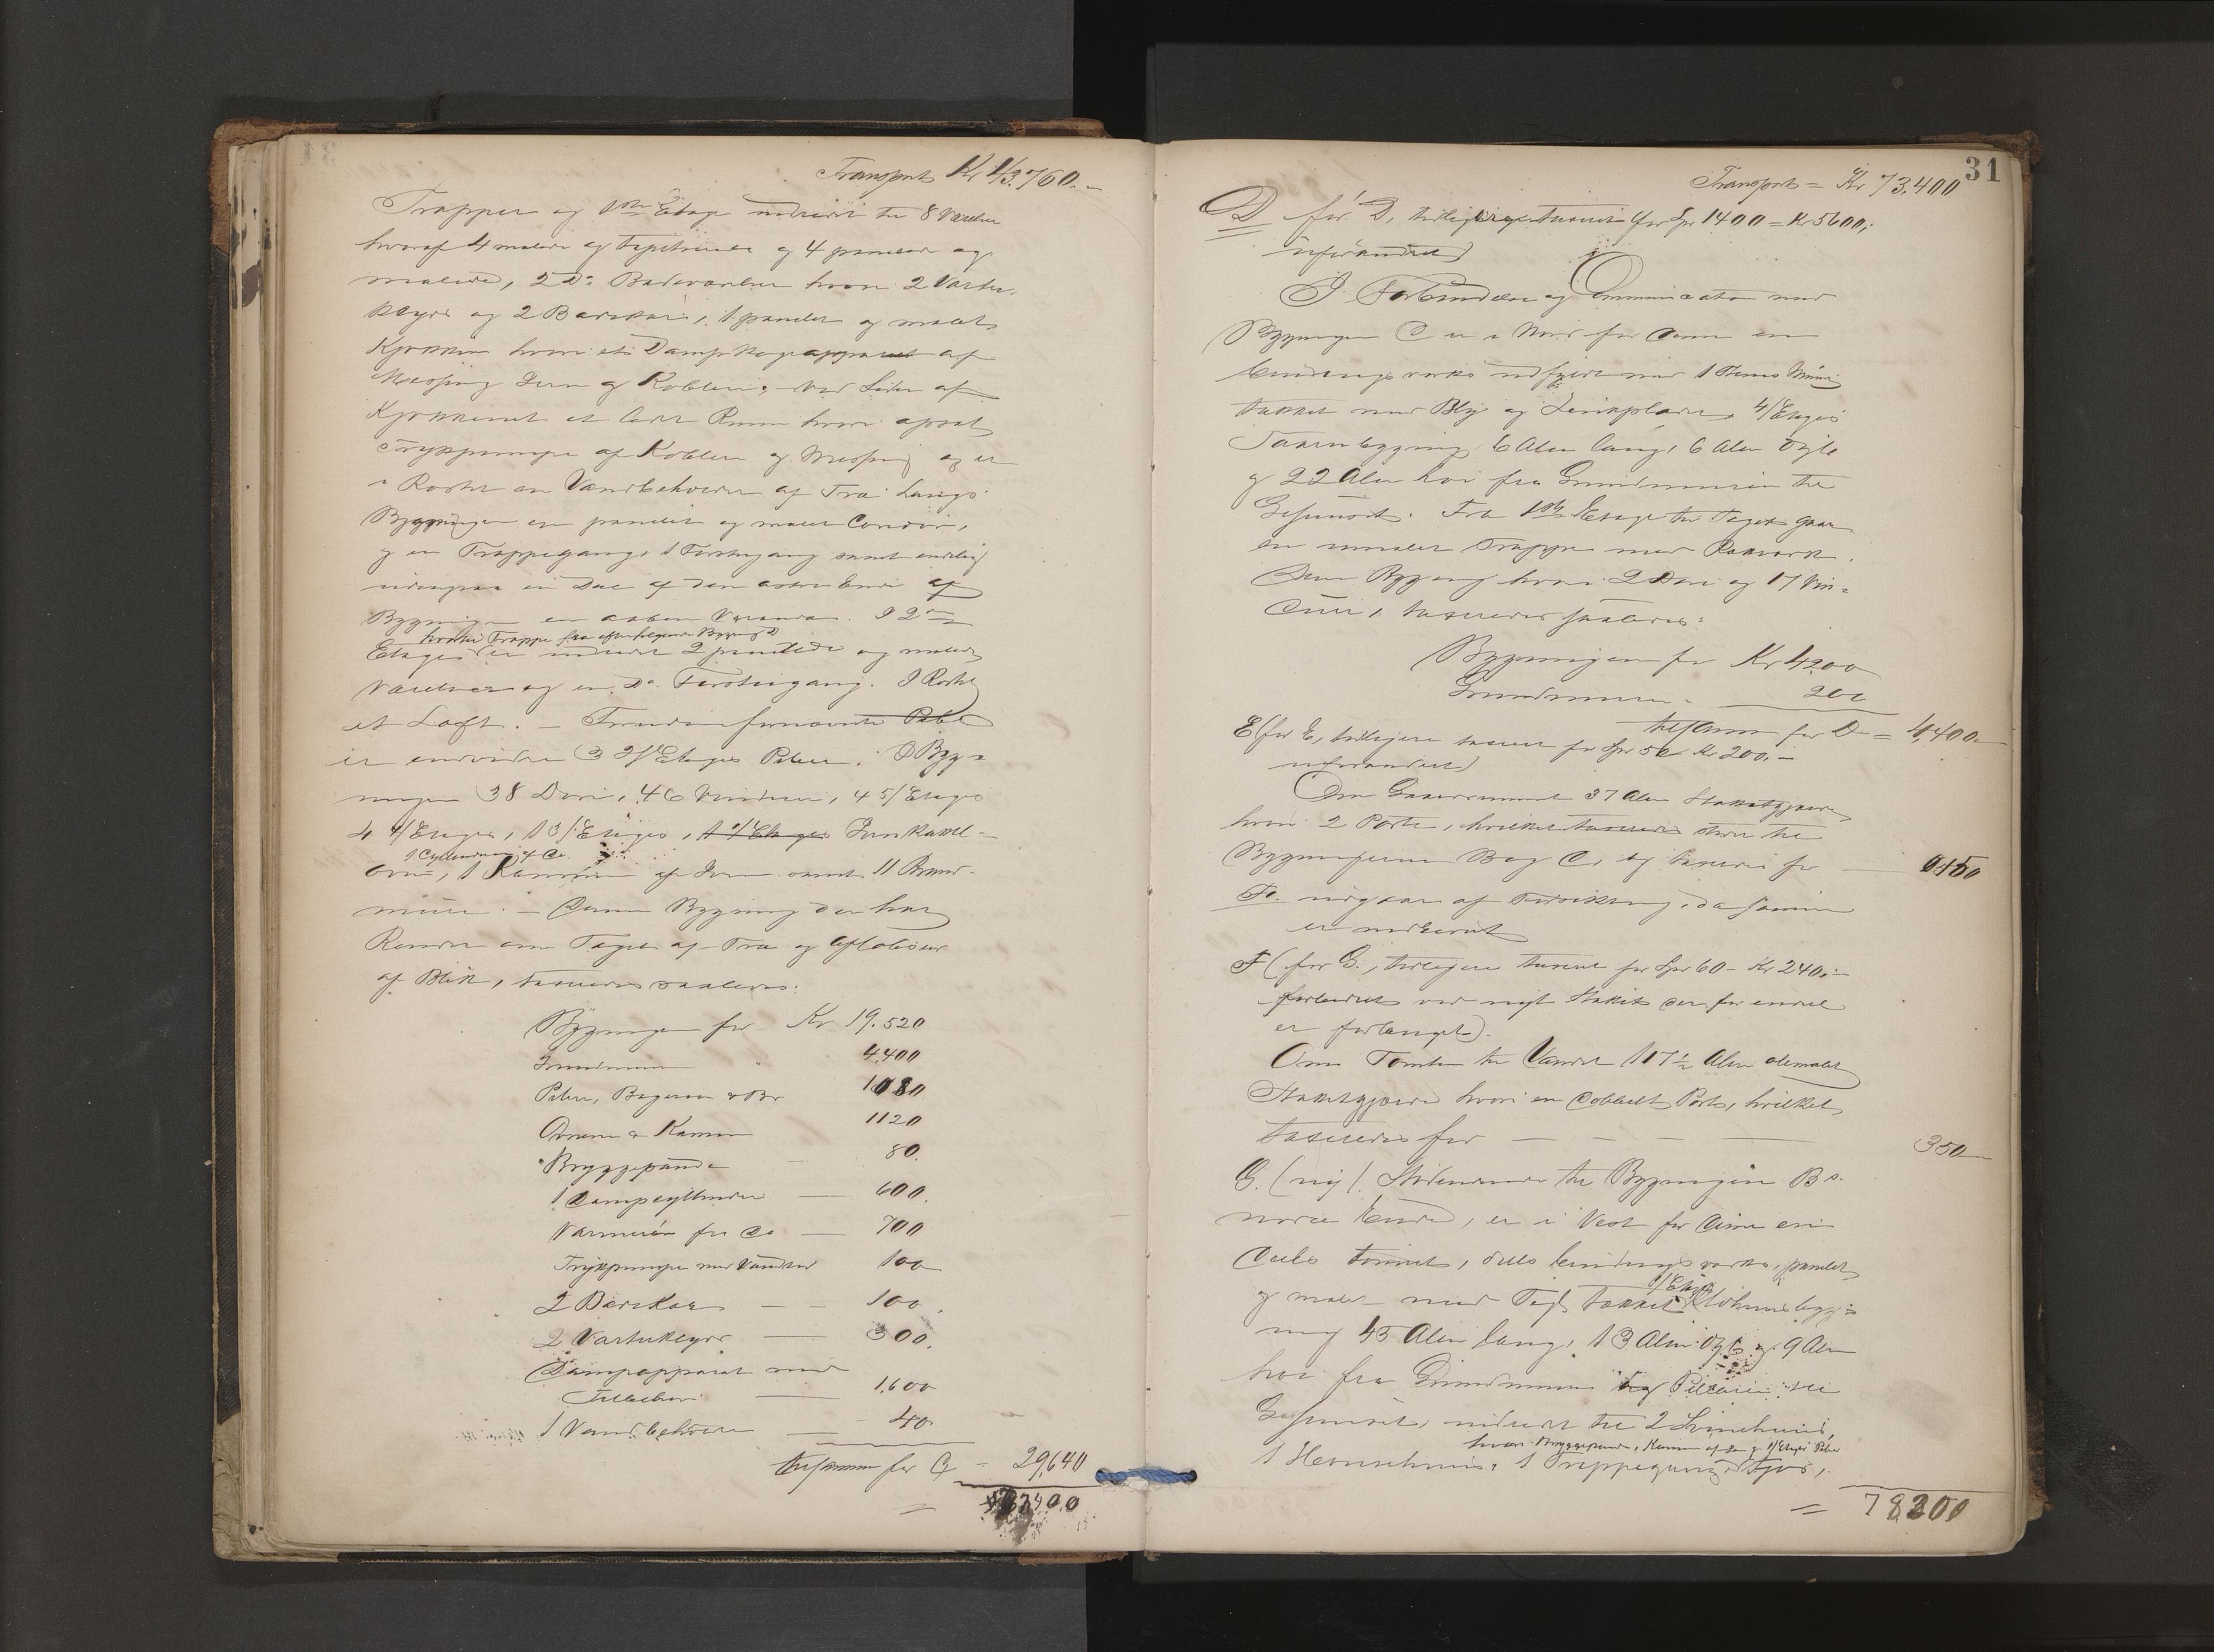 Transport Kr 43.760.-
Trapper og 1ste Etage indredet til 8 Værelser
hvoraf 4 malede og tapetserede og 4 panelede og
malede, 2 Do Badeværelser hvori 2 Varter
og 2 Badekar, 1 panelet og malet
Kjøkken hvori et Dampkogeapparat af
Messing Jern og Kobber; ved Siden af
Kjøkkenet et lidet Rum hvori opsat
Trykpumpe af Kobber og Messing og er
i Rostet en Vandbeholder af Træ. Langs
Bygningen en panelet og malet Coridor,
og en Trappegang, 1 Forstugang samt endelig
udenpaa en Del af den østre Ende af
Bygningen en aaben Veranda. I 2den
hvortil Trappe fra efterfølgende Bygning D
Etage er indredet 2 panelede og malede
Værelser og en Do Forstugang. I Rostet
et Loft. – Foruden fornævnte Piber
er endvidere 3 2/Etages Piber. I Byg-
ningen 38 Døre, 46 Vinduer, 4 5/Etages
4 4/Etages, 1 3/Etages, 1 2/Etages Jernkakkel-
1 Cylinderovn af Do
ovne, 1 Kamin af Jern samt 11 Brand-
mure. – Denne Bygning der har
Render om Taget af Træ og Afløbsrør
af Blik, taxeres saaledes:
Bygningen for Kr 19.520
Grundmuren " 4.400
Piber, Bagerovn & Br 1080
Ovnene & Kamin 1120
Bryggepande – 80.
1 Dampcylinder — 600.
Varmerør fra Do — 700
Trykpumpe med Vandrør 100
2 Badekar — — 100.
2 Varter — 300.
Dampapparat med
Tilbehør — 1.600
1 Vandbeholder — 40
tilsammen for C – 29,640
= 73400
31
Transport = Kr 73.400
D for D, tidligere taxeret for Spd 1400 = Kr 5600,-
uforandret)
I Forbindelse og Communication med
Bygningen C er i Nord for denne en
bindingsværks udfyldt med 1 Stens Muur
tækket med Bly og Zinkplader, 4/Etages
Taarnbygning 6 Alen lang, 6 Alen dyb
og 22 Alen høi fra Grundmuren til
Gesimset. Fra 1ste Etage til Taget gaar
en umalet Trappe med Rækværk.
Denne Bygning hvori 2 Døre og 17 Vin-
duer, taxeres saaledes:
Bygningen for Kr 4200
Grundmuren - 200
tilsammen for D = 4,400.-
E (for E, tidligere taxeret for Spd 50 Kr 200.-
uforandret)
Om Gaardsrummet 37 Alen Stakitgjærde
hvori 2 Porte, hvilket taxeres støder til
Bygningerne B og C, og taxeres for — 0150
Fo. udgaar af Forsikring, da samme
er nedrevet
F (for G., tidligere taxeret for Spd 60 – Kr 240.-
forbedret ved nyt Stakit der for endel
er forlænget).
Om Tomten til Vandet 117½ Alen oliemalet
Stakitgjærde hvori en dobbelt Port, hvilket
taxeres for — — — — 350.-
G. (ny). Stødende til Bygningen B's
nordre Ende, er i Vest for denne en
deels tømret, dels bindingsværks, panelet
1/Etages
og malet med Tegl tækket Udhuusbyg-
ning 45 Alen lang, 13 Alen dyb og 9 Alen
høi fra Grundmuren og Pillarer til
Gesimset, indredet til 2 Svinehuus,
hvori Bryggepande, Kamin af Jern og 1/Etages Pibe
1 Hønsehuus, 1 Trappegang, Fjøs,
= 78300